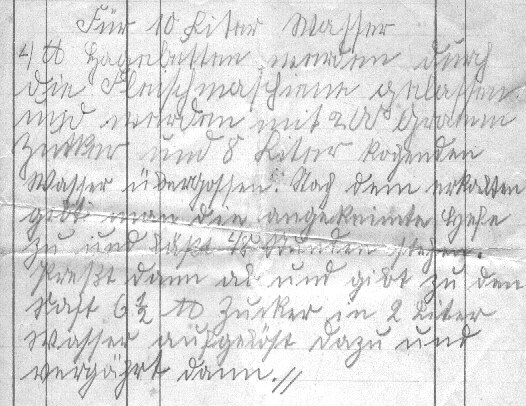 Für 10 Liter Wasser
4 ℔ Hagebutten werden durch
die Fleischmaschiene gelassen
und werden mit 200 Gramm
Zucker und 8 Liter kochenden
Wasser übergossen. Nach dem erkalten
gibt man die angekeimte Hefe
zu und läßt 48 Stunden stehen.
Preßt dann ab und gibt zu den
Saft 6 ½ ℔ Zucker in 2 Liter
Wasser aufgelöst dazu und
vergährt dann.